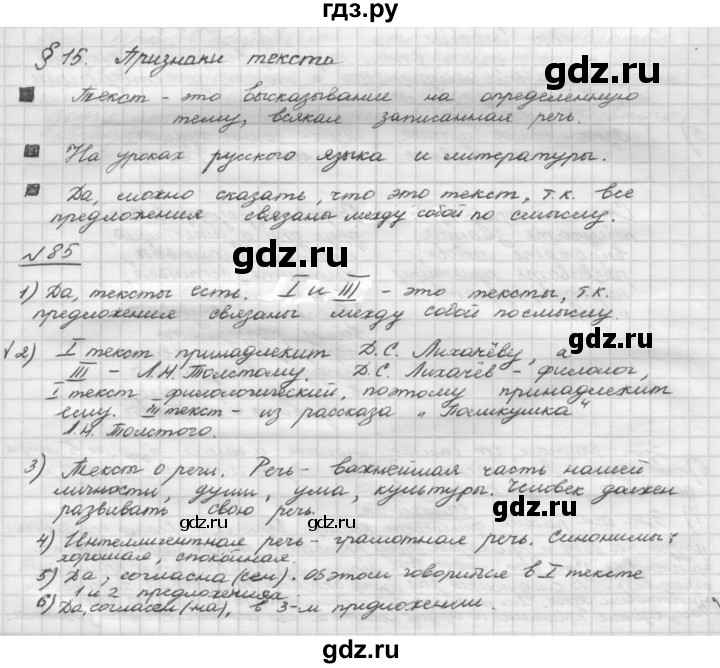 гдз.ру
§ 15. Признаки текста
Текст - это высказывание на определенную
тему, всякая записанная речь.
На уроках русского языка и литературы.
Да, можно сказать, что это текст, т.к. все
предложения связаны между собой по смыслу.
gdz.ru gdz.ru
№85
1) Да, тексты есть. I и III - это тексты, т.к.
предложения связаны между собой по смыслу.
2) I текст принадлежит Д.С. Лихачёву, а
III - Л.Н Толстому. Д.С. Лихачёв - филолог,
I текст филологический, поэтому принадлежит
ему. III текст - из рассказа „Поликушка“
Л.Н. Толстого.
gdz.ru gdz.ru
3) Текст о речи. Речь - важнейшая часть нашей
личности, души, ума, культуры. Человек должен
развивать свою речь.
gdz.ru gdz.ru
4) Интеллигентная речь - грамотная речь. Синонимы:
хорошая, спокойная.
5) Да, согласна (сен). Об этом говорится в I тексте
1 и 2 предложения.
6) Да, согласен (-на), в 3-м предложении.
gdz.ru